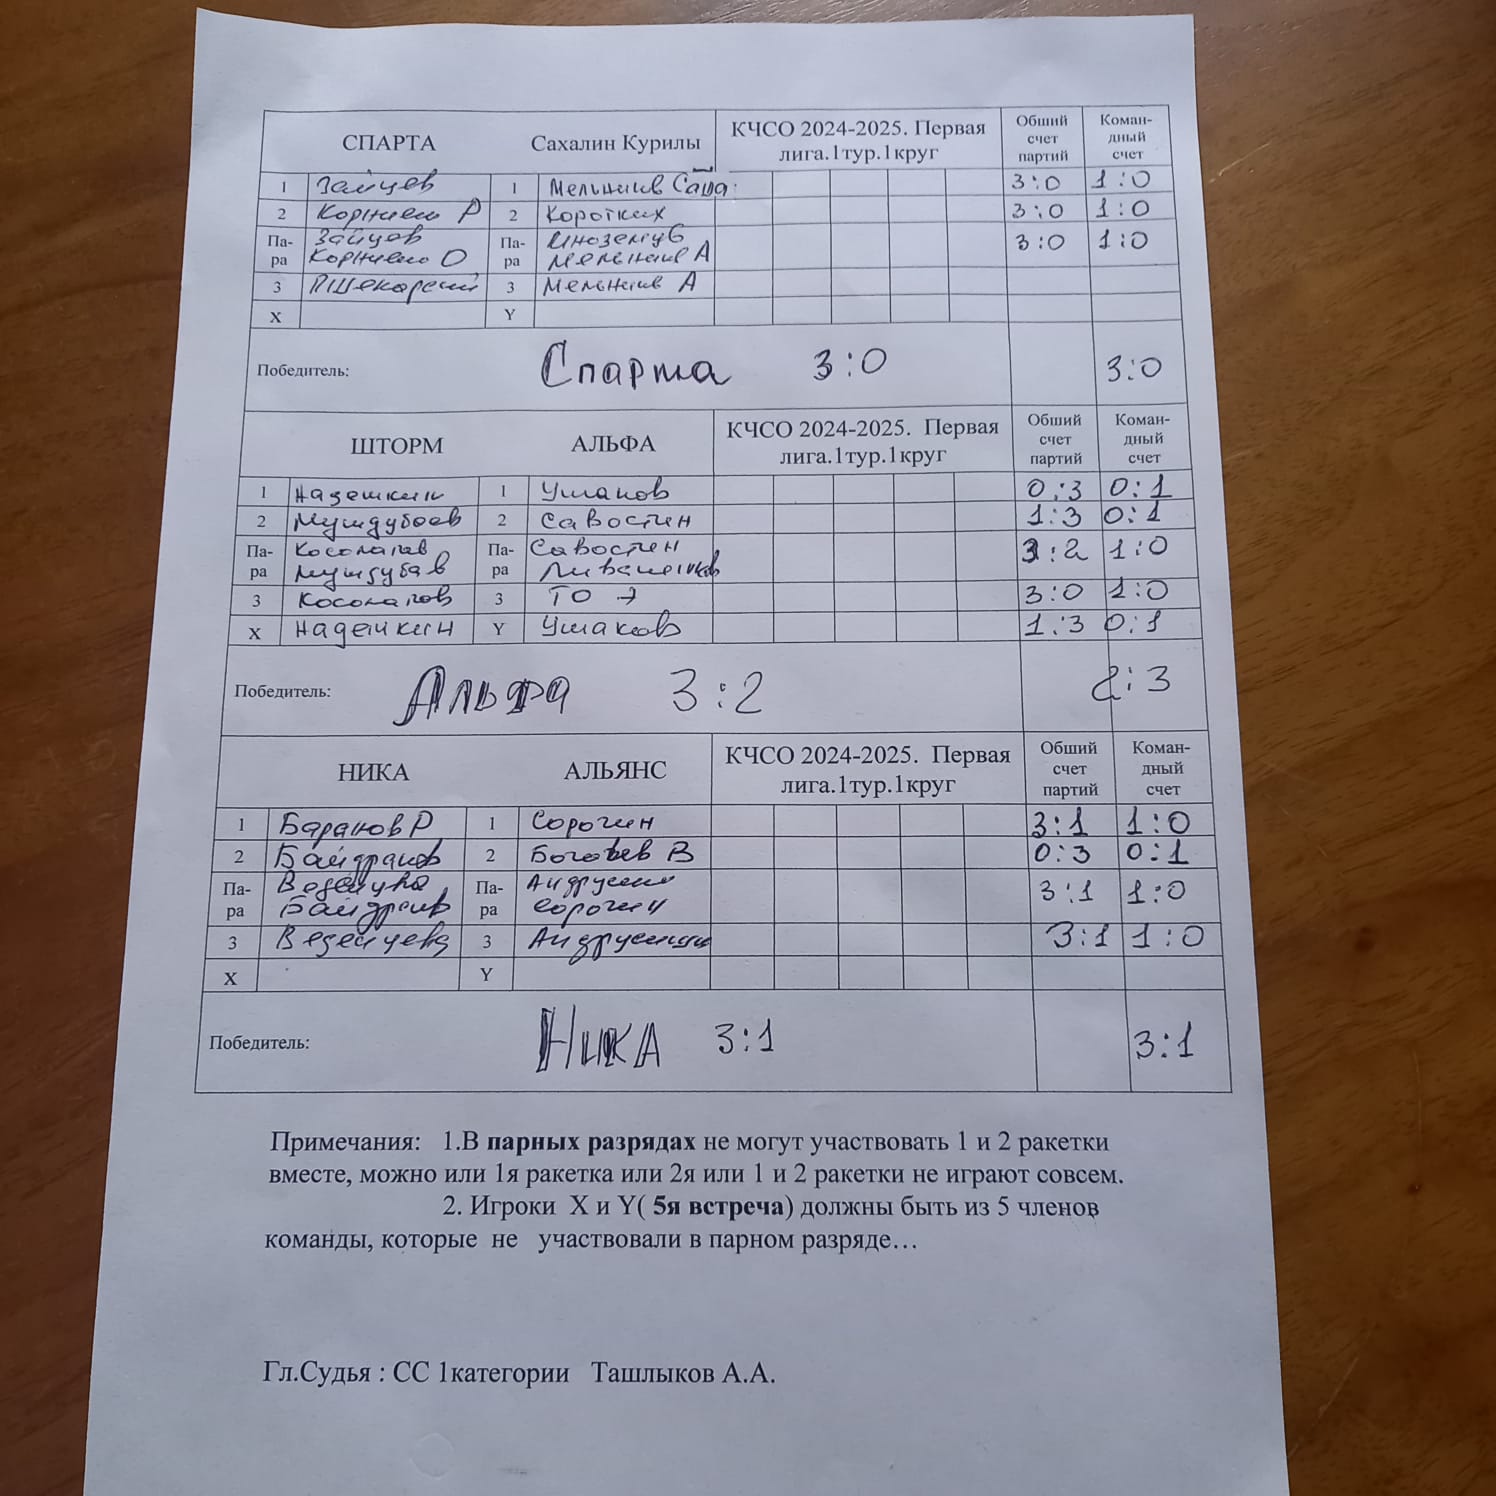 СПАРТА Сахалин Курилы КЧСО 2024-2025. Первая лига.1тур.1круг Обший счет партий Коман-дный счет
1 Зайцев 1 Мельников Саша 3:0 1:0
2 Корниенко Р 2 Коротких 3:0 1:0
Па-ра Зайцев Па-ра Иноземцев 3:0 1:0
Корниенко О Мельников А
3 3 Мельников А
X Y
Победитель: Спарта 3:0 3:0
ШТОРМ АЛЬФА КЧСО 2024-2025. Первая лига.1тур.1круг Обший счет партий Коман-дный счет
1 Надешкин 1 Ушаков 0:3 0:1
2 2 Савостин 1:3 0:1
Па-ра Косолапов Па-ра Савостин 3:2 1:0
3 Косолапов 3 ТО → 3:0 1:0
X Надешкин Y Ушаков 1:3 0:1
Победитель: Альфа 3:2 2:3
НИКА АЛЬЯНС КЧСО 2024-2025. Первая лига.1тур.1круг Обший счет партий Коман-дный счет
1 Баранов Р 1 Сорочин 3:1 1:0
2 2 В 0:3 0:1
Па-ра Па-ра 3:1 1:0
Сорочин
3 3 3:1 1:0
X Y
Победитель: НИКА 3:1 3:1
Примечания: 1.В парных разрядах не могут участвовать 1 и 2 ракетки
вместе, можно или 1я ракетка или 2я или 1 и 2 ракетки не играют совсем.
2. Игроки X и Y( 5я встреча) должны быть из 5 членов
команды, которые не участвовали в парном разряде…
Гл.Судья : СС 1категории Ташлыков А.А.